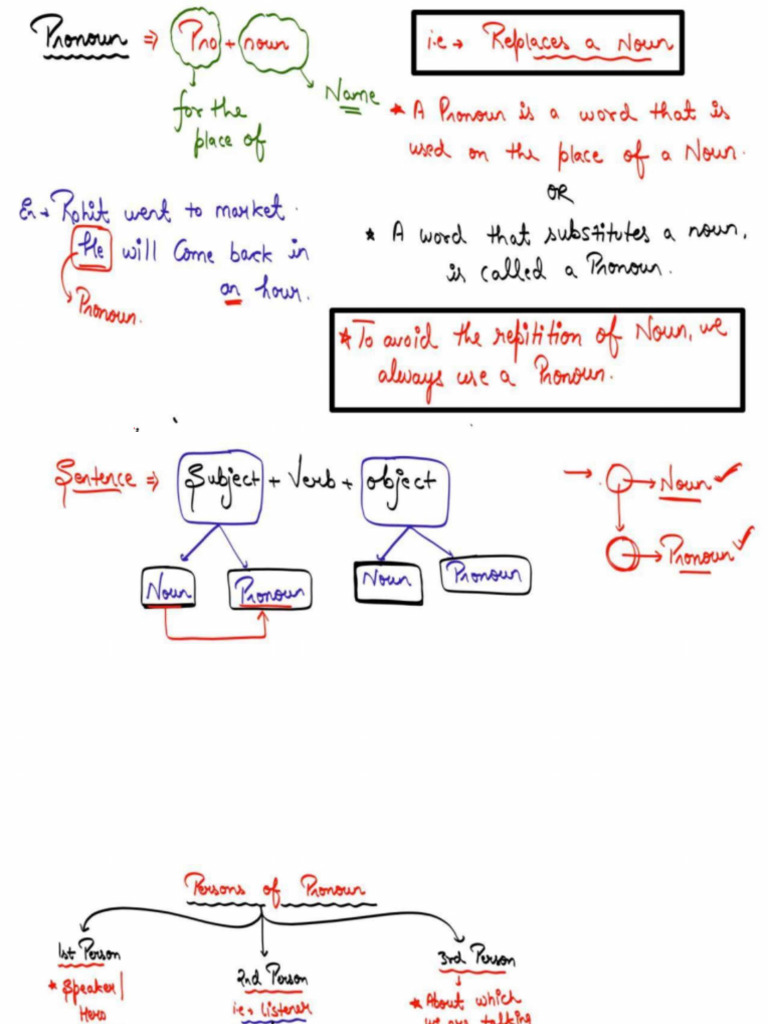 Pronoun ⇒ Pro + noun
for the
place of
Name
i.e → Replaces a Noun
* A Pronoun is a word that is
used on the place of a Noun.
OR
* A word that substitutes a noun,
is called a Pronoun.
Ex → Rohit went to market.
He will Come back in
an hour.
Pronoun.
* To avoid the repitition of Noun, we
always use a Pronoun.
Sentence ⇒ Subject + Verb + object
Noun Pronoun Noun Pronoun
→ Noun ✓
→ Pronoun ✓
Persons of Pronoun
1st Person
* Speaker/
Hero
2nd Person
i.e → Listener
3rd Person
* About which
we are talking